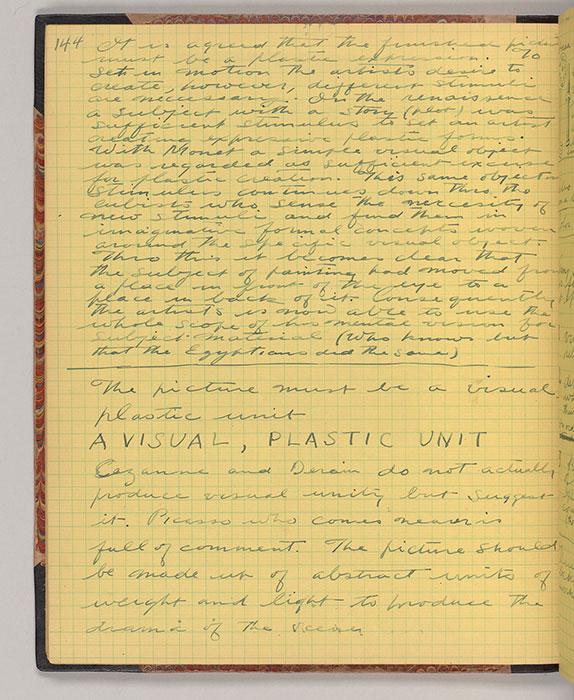 144 It is agreed that the finished picture
must be a plastic expression. To
set in motion the artists desire to
create, however, different stimuli
are necessary. In the renaissance
a subject with a story (plot) was
sufficient stimulus to set an artist
creating expressive plastic forms.
With Monet a simple visual object
was regarded as sufficient excuse
for plastic creation. This same object
stimulus continues down thru the
cubists who sense the necessity of
new stimuli and find them in
imaginative formal concepts woven
around the specific visual object.
Thru this it becomes clear that
the subject of painting had moved from
a place in front of the eye to a
place in back of it. Consequently
the artists is now able to use the
whole scope of his mental vision for
subject-material (Who knows but
that the Egyptians did the same)
The picture must be a visual-
plastic unit
A VISUAL, PLASTIC UNIT
Cezanne and Derain do not actually
produce visual unity but suggest
it. Picasso who comes nearer is
full of comment. The picture should
be made up of abstract units of
weight and light to produce the
drama of the